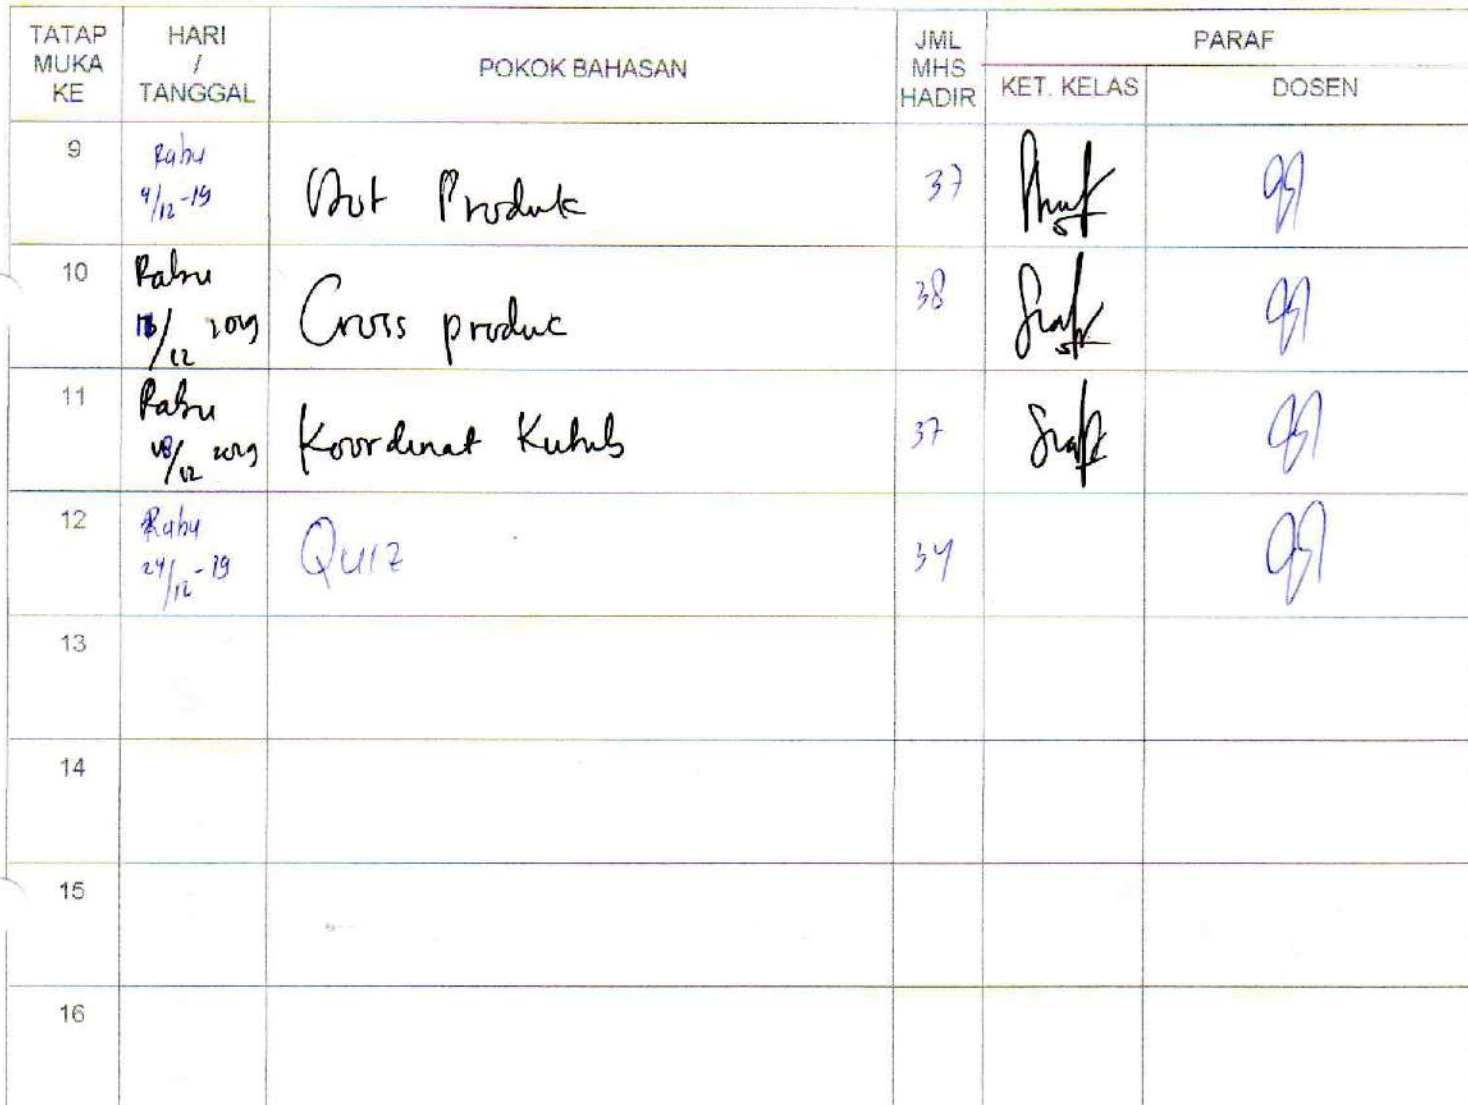 TATAP MUKA KE
HARI / TANGGAL
POKOK BAHASAN
JML MHS HADIR
PARAF
KET. KELAS
DOSEN
9
Rabu
4/12-19
Dot Produk
37
10
Rabu
/12 2019
Cross produc
38
11
Rabu
18/12 2019
Koordinat Kutub
37
12
Rabu
24/12-19
QUIZ
34
13
14
15
16